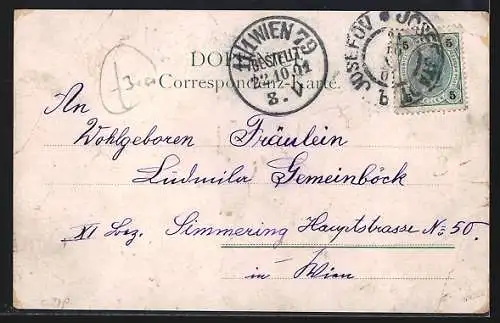 WIEN 79
BESTELLT
22.10.01
JOSEFOV
5 5
Correspondenz-Karte.
An
Wohlgeboren Fräulein
Ludmila Gemeinböck
XI Bez. Simmering Hauptstrasse No 50.
in Wien